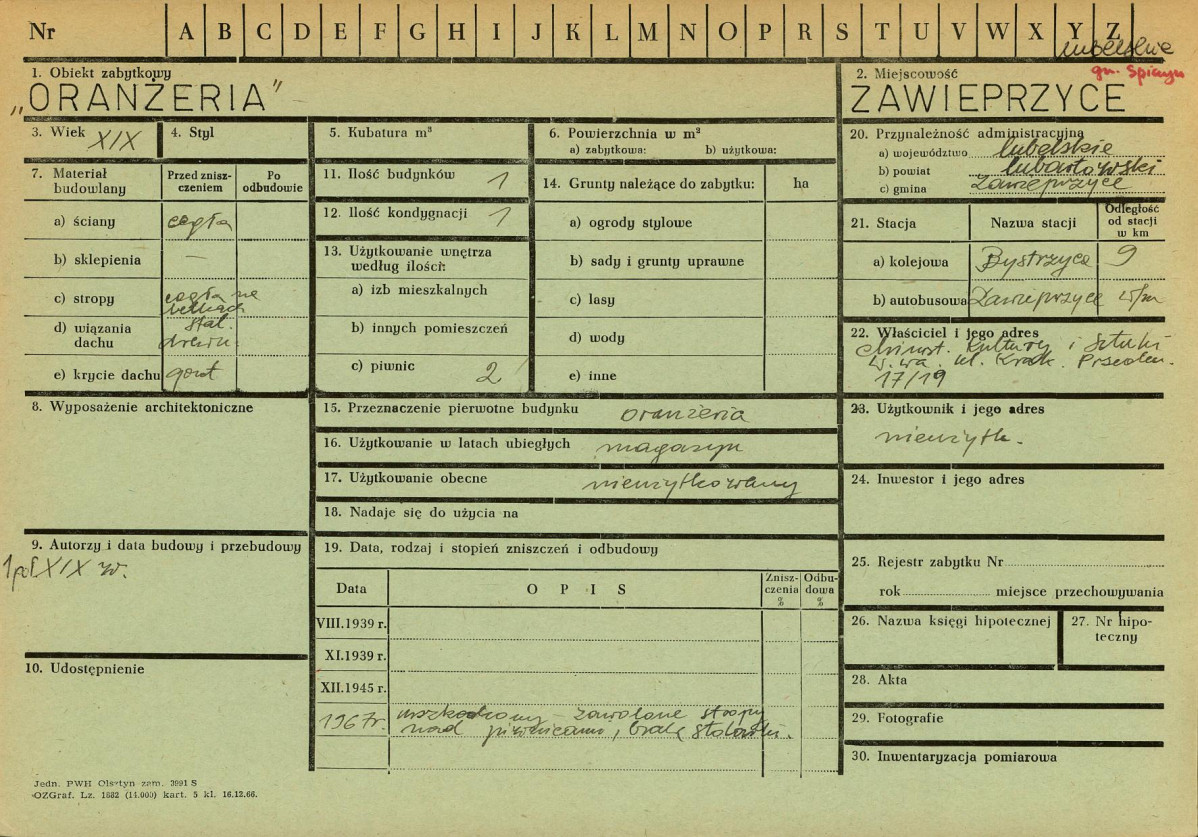 Nr A B C D E F G H I J K L M N O P R S T U V W X Y Z
lubelskie
gm. Spiczyn
1. Obiekt zabytkowy
„ORANŻERIA"
2. Miejscowość
ZAWIEPRZYCE
3. Wiek XIX
4. Styl
5. Kubatura m³
6. Powierzchnia w m²
a) zabytkowa: b) użytkowa:
7. Materiał budowlany
Przed zniszczeniem
Po odbudowie
a) ściany cegła
b) sklepienia —
c) stropy cegła na
belkach
stal.
d) wiązania
dachu drewn.
e) krycie dachu gont
8. Wyposażenie architektoniczne
9. Autorzy i data budowy i przebudowy
1 poł XIX w.
10. Udostępnienie
11. Ilość budynków 1
12. Ilość kondygnacji 1
13. Użytkowanie wnętrza
według ilości:
a) izb mieszkalnych
b) innych pomieszczeń
c) piwnic 2
14. Grunty należące do zabytku: ha
a) ogrody stylowe
b) sady i grunty uprawne
c) lasy
d) wody
e) inne
15. Przeznaczenie pierwotne budynku oranżeria
16. Użytkowanie w latach ubiegłych magazyn
17. Użytkowanie obecne nieużytkowany
18. Nadaje się do użycia na
19. Data, rodzaj i stopień zniszczeń i odbudowy
Data OPIS Zniszczenia % Odbudowa %
VIII.1939 r.
XI.1939 r.
XII.1945 r.
1967r. uszkodzony – zawalone stropy
nad piwnicami, brak stolarki.
20. Przynależność administracyjna
a) województwo lubelskie
b) powiat lubartowski
c) gmina Zawieprzyce
21. Stacja Nazwa stacji Odległość od stacji w km
a) kolejowa Bystrzyca 9
b) autobusowa Zawieprzyce
22. Właściciel i jego adres
Minist. Kultury i Sztuki
W-wa ul. Krak. Przedm.
17/19
23. Użytkownik i jego adres
nieużytk.
24. Inwestor i jego adres
25. Rejestr zabytku Nr
rok miejsce przechowywania
26. Nazwa księgi hipotecznej
27. Nr hipoteczny
28. Akta
29. Fotografie
30. Inwentaryzacja pomiarowa
Jedn. PWH Olsztyn zam. 3991 S
OZGraf. Lz. 1882 (14.000) kart. 5 kl. 16.12.66.